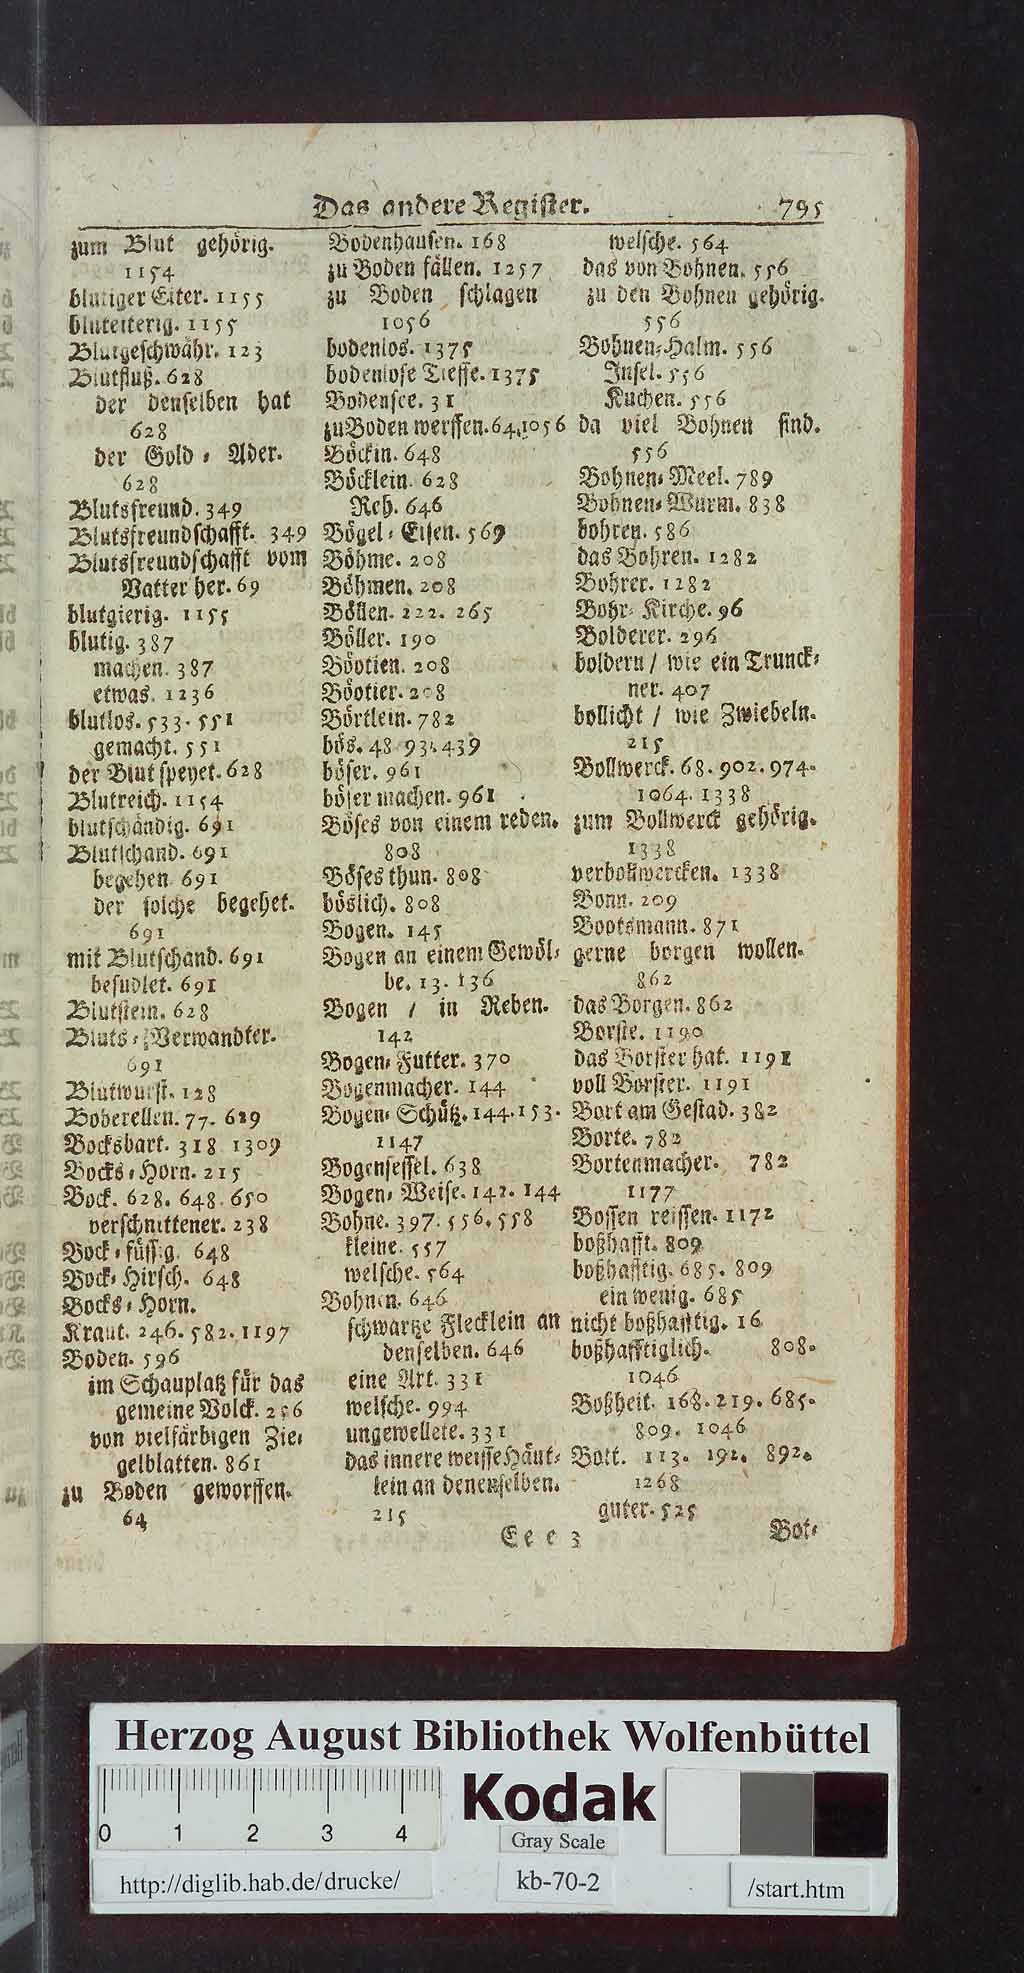 Das andere Register. 795
zum Blut gehörig.
1154
blutiger Eiter. 1155
bluteiterig. 1155
Blutgeschwähr. 123
Blutfluß. 628
der denselben hat
628
der Gold-Ader.
628
Blutsfreund. 349
Blutsfreundschafft. 349
Blutsfreundschafft vom
Vatter her. 69
blutgierig. 1155
blutig. 387
machen. 387
etwas. 1236
blutlos. 533. 551
gemacht. 551
der Blut speyet. 628
Blutreich. 1154
blutschändig. 691
Blutschand. 691
begehen 691
der solche begehet.
691
mit Blutschand. 691
besudlet. 691
Blutstein. 628
Bluts-Verwandter.
691
Blutwurst. 128
Boberellen. 77. 629
Bocksbart. 318 1309
Bocks-Horn. 215
Bock. 628. 648. 650
verschnittener. 238
Bock-füssig. 648
Bock-Hirsch. 648
Bocks-Horn.
Kraut. 246. 582. 1197
Boden. 596
im Schauplatz für das
gemeine Volck. 256
von vielfärbigen Zie-
gelblatten. 861
zu Boden geworffen.
64
Bodenhausen. 168
zu Boden fällen. 1257
zu Boden schlagen
1056
bodenlos. 1375
bodenlose Tieffe. 1375
Bodensee. 31
zu Boden werffen. 64. 1056
Böckin. 648
Böcklein. 628
Reh. 646
Bögel-Eisen. 569
Böhme. 208
Böhmen. 208
Böllen. 222. 265
Böller. 190
Böotien. 208
Böotier. 208
Börtlein. 782
bös. 48 93. 439
böser. 961
böser machen. 961
Böses von einem reden.
808
Böses thun. 808
böslich. 808
Bogen. 145
Bogen an einem Gewöl-
be. 13. 136
Bogen / in Reben.
142
Bogen-Futter. 370
Bogenmacher. 144
Bogen-Schütz. 144. 153.
1147
Bogensessel. 638
Bogen-Weise. 142. 144
Bohne. 397. 556. 558
kleine. 557
welsche. 564
Bohnen. 646
schwartze Flecklein an
denselben. 646
eine Art. 331
welsche. 994
ungewellete. 331
das innere weisse Häut-
lein an denenselben.
215
welsche. 564
das von Bohnen. 556
zu den Bohnen gehörig.
556
Bohnen-Halm. 556
Insel. 556
Kuchen. 556
da viel Bohnen sind.
556
Bohnen-Meel. 789
Bohnen-Wurm. 838
bohren. 586
das Bohren. 1282
Bohrer. 1282
Bohr-Kirche. 96
Bolderer. 296
boldern / wie ein Trunck-
ner. 407
bollicht / wie Zwiebeln.
215
Bollwerck. 68. 902. 974.
1064. 1338
zum Bollwerck gehörig.
1338
verbollwercken. 1338
Bonn. 209
Bootsmann. 871
gerne borgen wollen.
862
das Borgen. 862
Borste. 1190
das Borster hat. 1191
voll Borster. 1191
Bort am Gestad. 382
Borte. 782
Bortenmacher. 782
1177
Bossen reissen. 1172
boßhafft. 809
boßhafftig. 685. 809
ein wenig. 685
nicht boßhafftig. 16
boßhafftiglich. 808.
1046
Boßheit. 168. 219. 685.
809. 1046
Bott. 113. 192. 892.
1268
guter. 525
Eee 3 Bot-
Herzog August Bibliothek Wolfenbüttel
0 1 2 3 4
Kodak
Gray Scale
http://diglib.hab.de/drucke/ kb-70-2 /start.htm